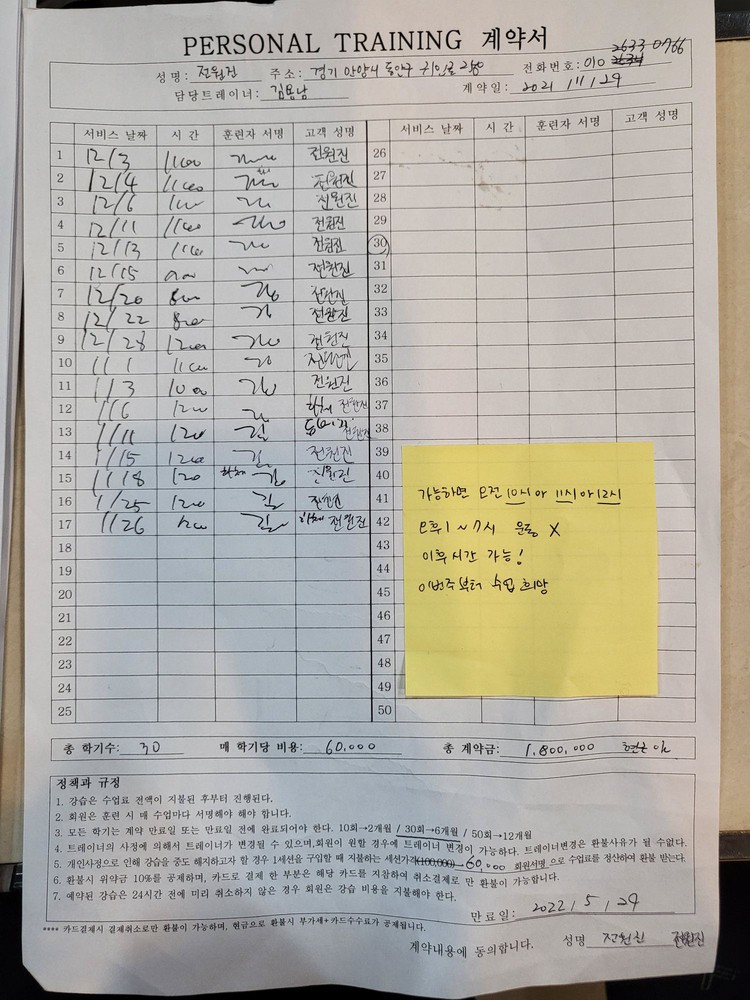 PERSONAL TRAINING 계약서
성명: 전원진 주소: 경기 안양시 동안구 전화번호: 010 2633 0766
담당트레이너: 김용남 계약일: 2021 / 11 / 29
서비스 날짜 시 간 훈련자 서명 고객 성명 서비스 날짜 시 간 훈련자 서명 고객 성명
1 12/3 11:00 전원진 26
2 12/4 11:00 전원진 27
3 12/6 전원진 28
4 12/11 11:00 전원진 29
5 12/13 11:00 전원진 30
6 12/15 전원진 31
7 12/20 전원진 32
8 12/22 전원진 33
9 12/28 전원진 34
10 1/1 전원진 35
11 1/3 전원진 36
12 1/6 전원진 37
13 1/11 전원진 38
14 1/15 전원진 39
15 1/18 전원진 40
16 1/25 전원진 41
17 1/26 전원진 42
18 43
19 44
20 45
21 46
22 47
23 48
24 49
25 50
가능하면 오전 10시 or 11시 or 12시
오후 1 ~ 7시 운동 X
이후시간 가능!
이번주부터 수업 희망
총 학기수: 30 매 학기당 비용: 60,000 총 계약금: 1,800,000
정책과 규정
1. 강습은 수업료 전액이 지불된 후부터 진행된다.
2. 회원은 훈련 시 매 수업마다 서명해야 해야 합니다.
3. 모든 학기는 계약 만료일 또는 만료일 전에 완료되어야 한다. 10회→2개월 / 30회→6개월 / 50회→12개월
4. 트레이너의 사정에 의해서 트레이너가 변경될 수 있으며,회원이 원할 경우에 트레이너 변경이 가능하다. 트레이너변경은 환불사유가 될 수없다.
5. 개인사정으로 인해 강습을 중도 해지하고자 할 경우 1세션을 구입할 때 지불하는 세션가격(100,000)→60,000 회원서명 으로 수업료를 정산하여 환불 받는다.
6. 환불시 위약금 10%를 공제하며, 카드로 결제 한 부분은 해당 카드를 지참하여 취소결제로 만 환불이 가능합니다.
7. 예약된 강습은 24시간 전에 미리 취소하지 않은 경우 회원은 강습 비용을 지불해야 한다.
만료일: 2022 / 5 / 29
**** 카드결제시 결제취소로만 환불이 가능하며, 현금으로 환불시 부가세+카드수수료가 공제됩니다.
계약내용에 동의합니다. 성명 전원진 전원진